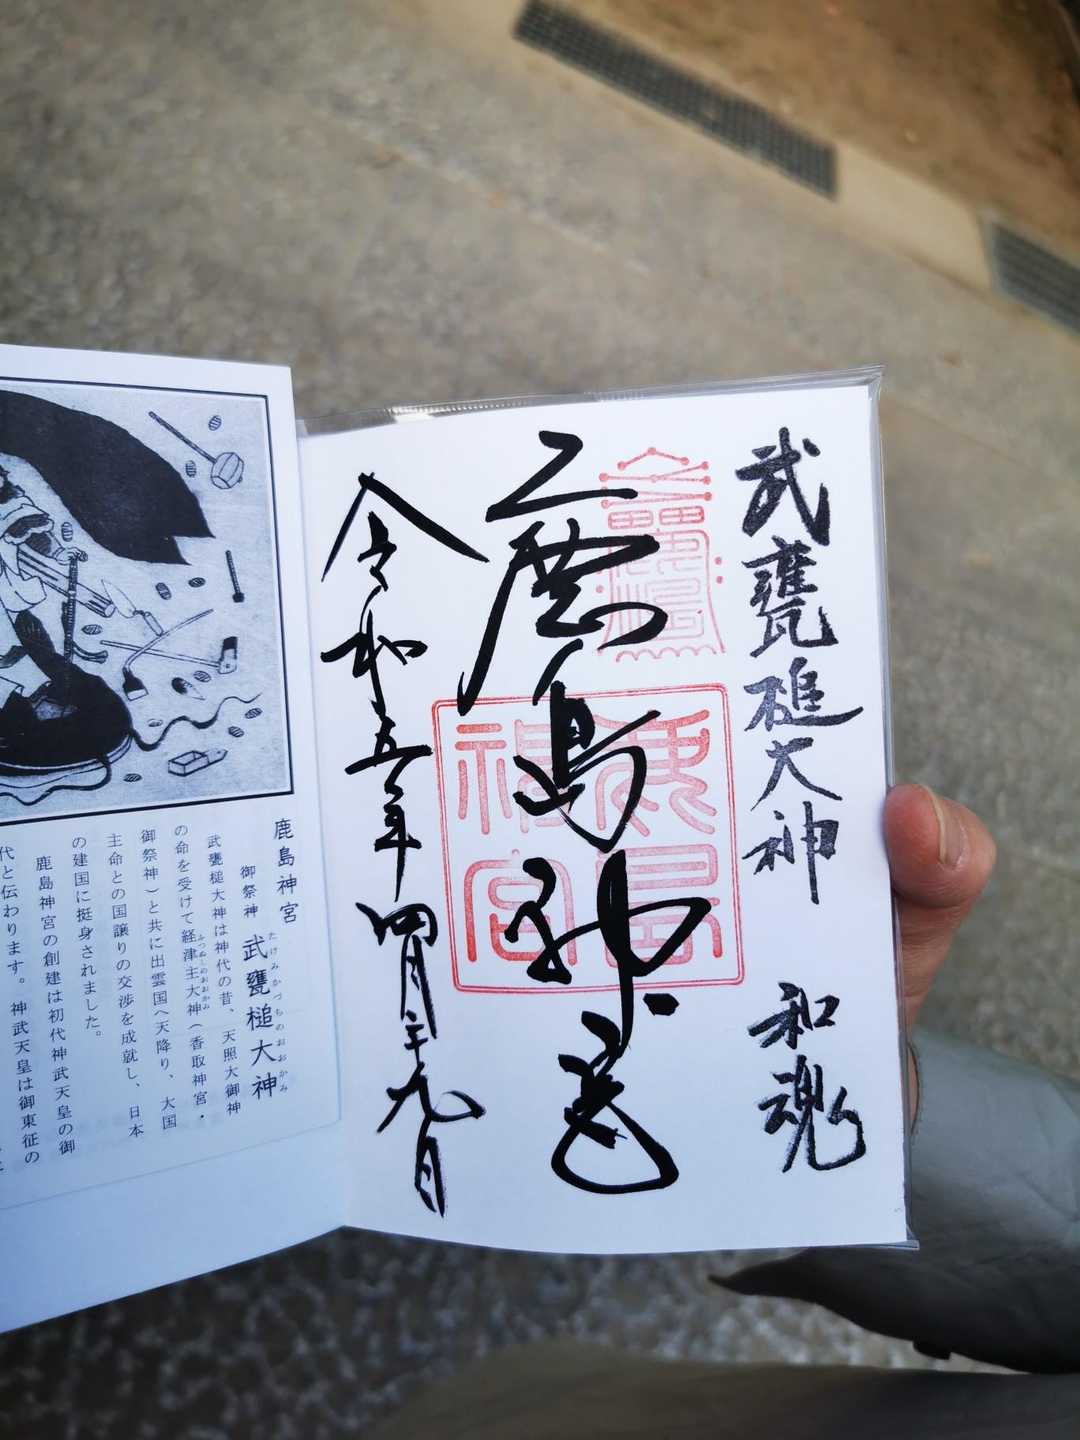 武甕槌大神 和魂
鹿島神宮
令和五年四月二十九日
鹿島
神宮
鹿島神宮
御祭神 武甕槌大神
たけみかづちのおおかみ
武甕槌大神は神代の昔、天照大御神
の命を受けて経津主大神（香取神宮・
ふつぬしのおおかみ
御祭神）と共に出雲国へ天降り、大国
主命との国譲りの交渉を成就し、日本
の建国に挺身されました。
鹿島神宮の創建は初代神武天皇の御
代と伝わります。神武天皇は御東征の